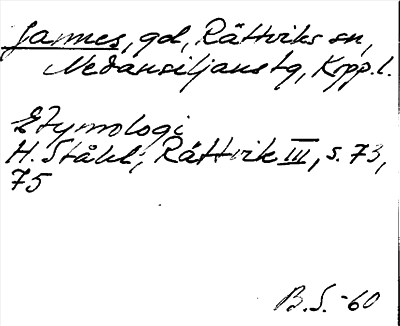 Jannes, gd, Rättviks sn,
Nedansiljans tg, Kopp.l.
Etymologi
H. Ståhl; Rättvik III, s. 73,
75
B.S. -60